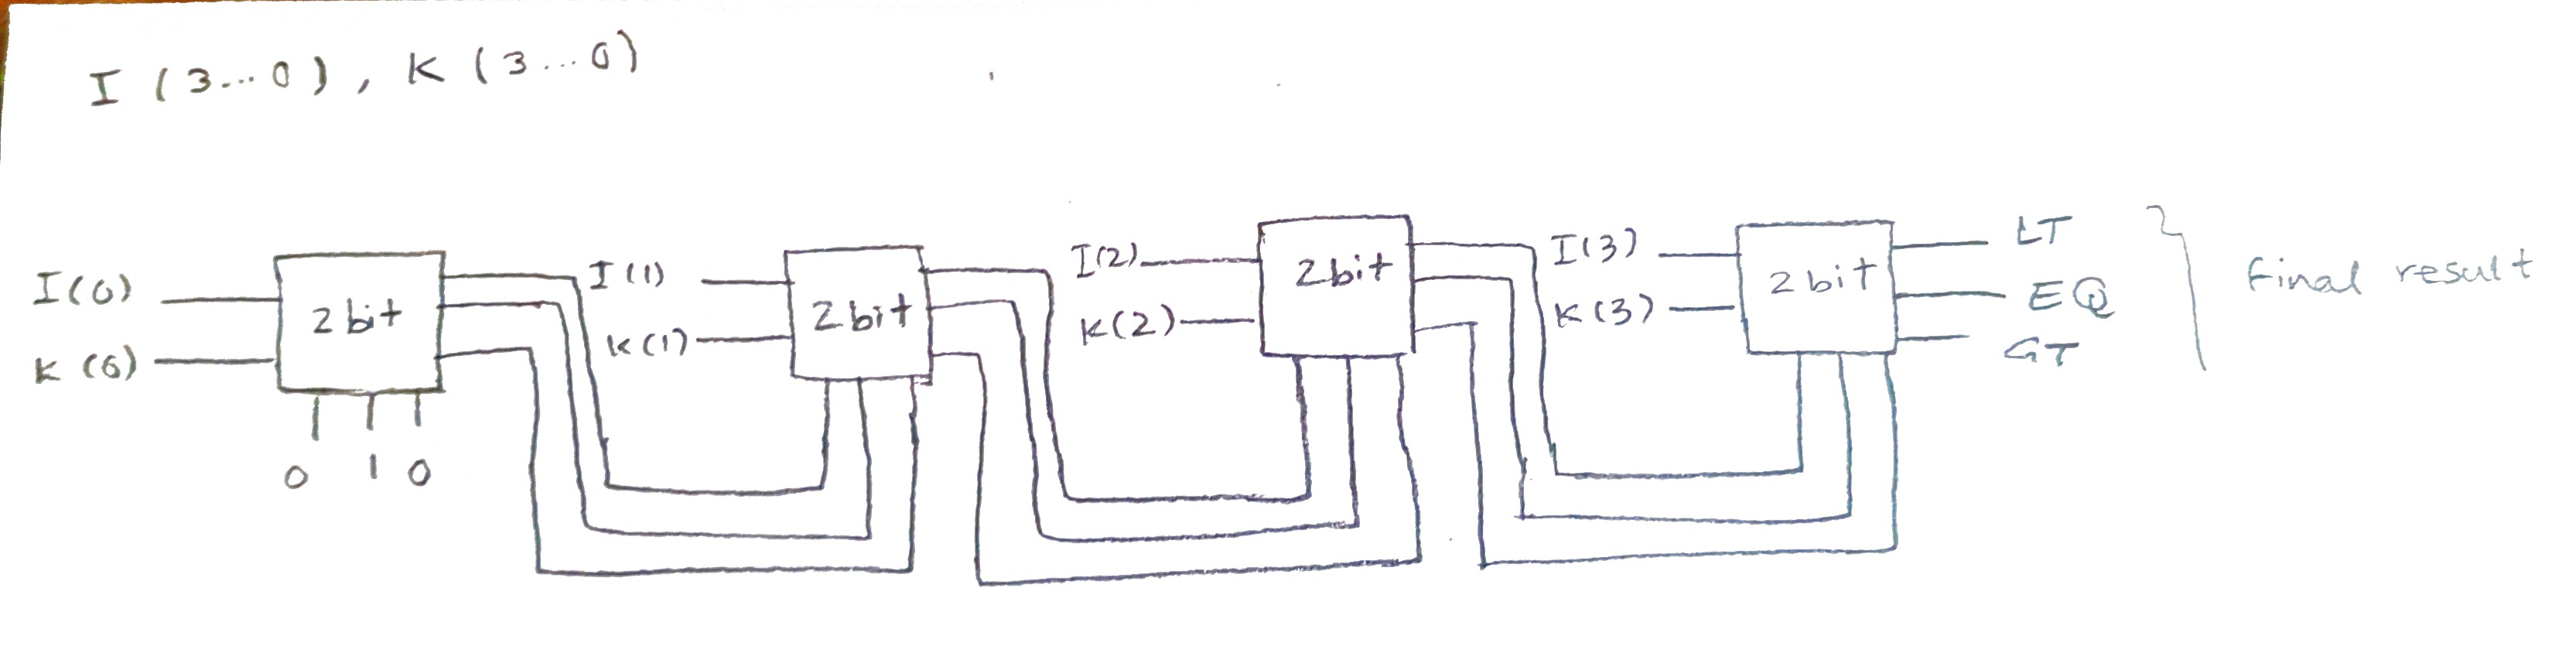 I (3...0), K (3...0)
I(0)
K(0)
2 bit
0 1 0
I(1)
K(1)
2 bit
I(2)
K(2)
2 bit
I(3)
K(3)
2 bit
LT
EQ
GT
final result